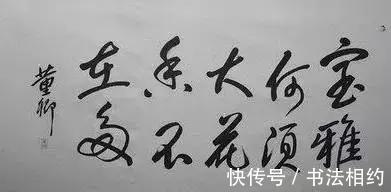 室雅
何须
大花
香不
在多
董卿
快传号 / 书法相约